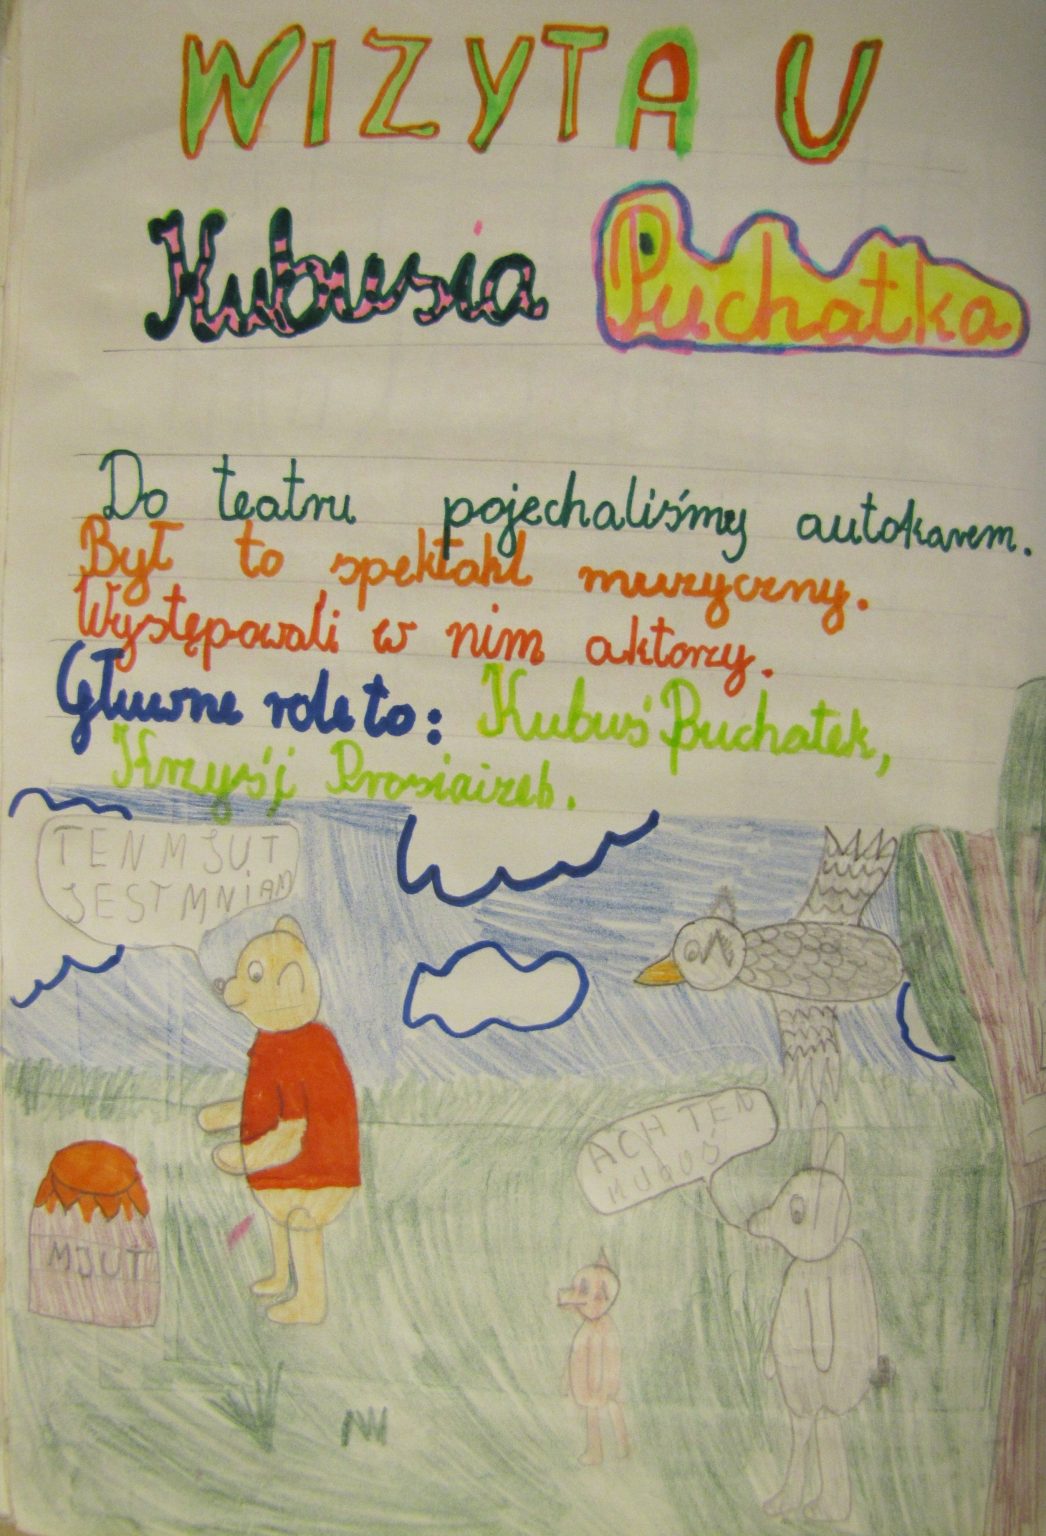 WIZYTA U
Kubusia Puchatka
Do teatru pojechaliśmy autokarem.
Był to spektakl muzyczny.
Występowali w nim aktorzy.
Głuwne role to: Kubuś Puchatek,
Krzyś i Prosiaczek.
TEN MJUT
JEST MNIAM
ACH TEN
KUBUŚ
MJUT